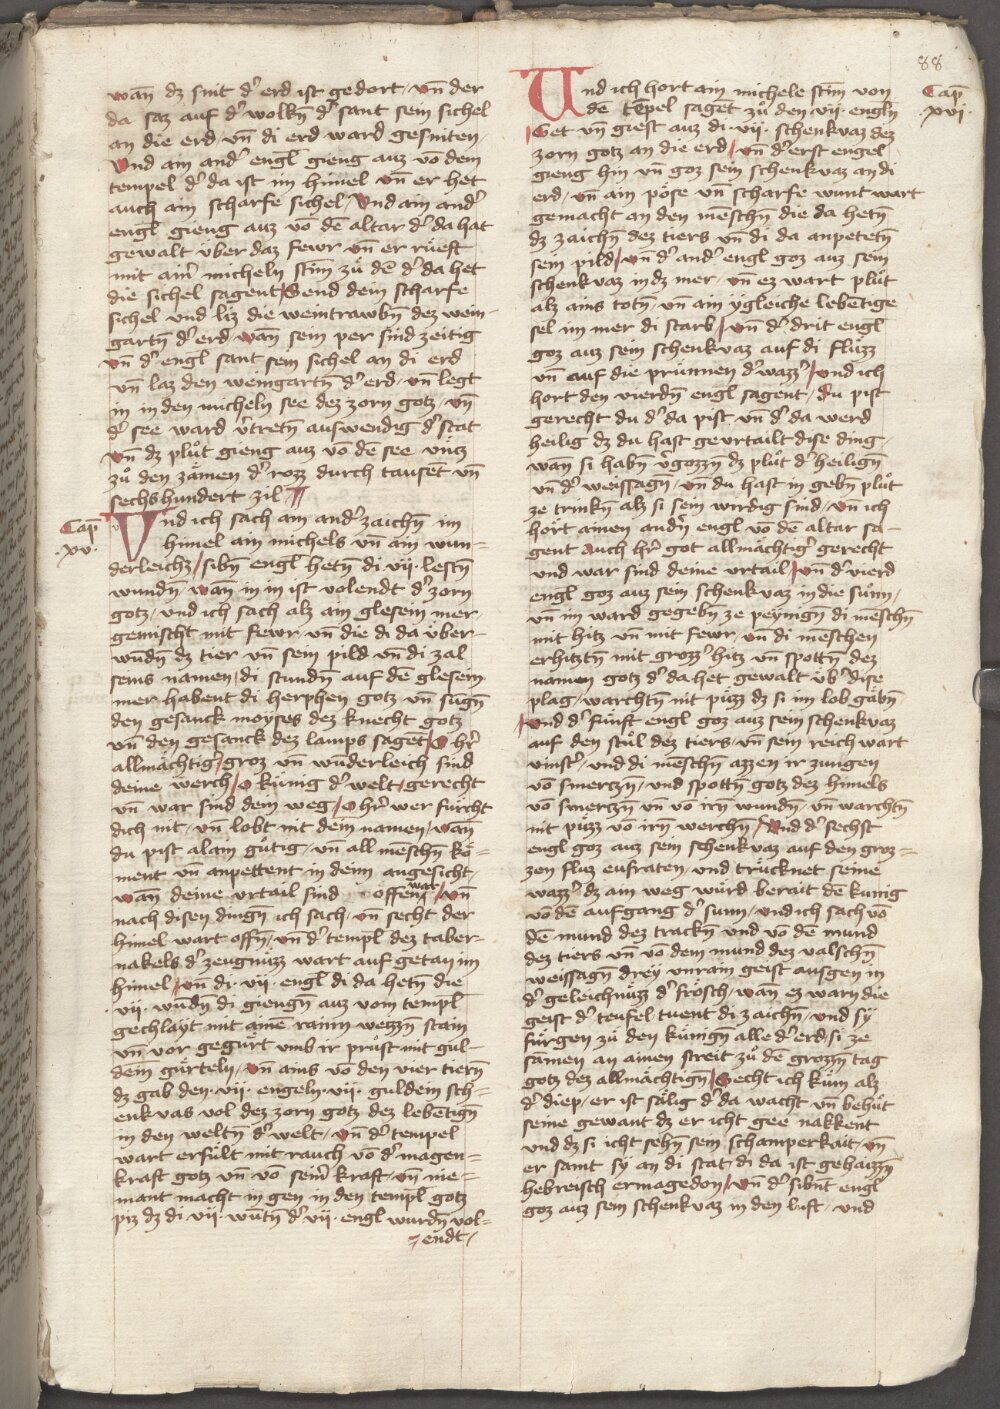 88
wañ dz snit dˀ erd ist gedort / vñ der
da saz auf dˀ wolkñ dˀ sant sein sichel
an die erd / vñ di erd ward gesniten /
Vnd ain andˀ engl gieng auz võ dem
tempel dˀ da ist im himel vñ er het
auch ain scharfe sichel / Vnd ain andˀ
engl gieng auz võ dē altar dˀ da hat
gewalt über daz fewr vñ er rüeft
mit ainˀ micheln stim̄ zů dē dˀ da het
die sichel sagent / Send dein scharfe
sichel und liz die weintrawbñ dez wein-
gartñ dˀ erd / wañ sein per sind zeitig
vñ dˀ engl sant sein sichel an di erd
vñ laz den weingartñ dˀ erd / vñ legt
in in den micheln see dez zorn gotz / vñ
dˀ see ward vˀtretñ auswendig dˀ stat
vñ dz plůt gieng auz võ dē see vntz
zů den zämen dˀ rozz durch tausēt vñ
sechshundert zil
Cap̄ .xv.
Vnd ich sach ain andˀ zaichñ im
himel ain michels vñ ain wun-
derleichz / sibñ engl hetñ di .vii. lestñ
wundñ / wañ in in ist volendt dˀ zorn
gotz / vnd ich sach alz ain glesein mer
gemischt mit fewr / vñ die di da über-
wūdñ dz tier vñ sein pild vñ di zal
seins namen / di stundñ auf dē glesein
mer habent di herphen gotz vñ sungñ
den gesanck moyses dez knecht gotz
vñ den gesanck dez lamps sagēt / O hrˀ
allmächtigˀ / groz vñ wūderleich sind
deine werch / o künig dˀ welt / gerecht
vñ war sind dein weg / O hrˀ wer fürcht
dich nit / vñ lobt nit dein namen / wañ
du pist alain gůtig / vñ all menschñ kö-
ment vñ anpettent in deim angesicht /
wañ deine vrtail sind offenwar / vñ
nach disen dingñ ich sach / vñ secht der
himel wart offñ / vñ dˀ templ dez taber-
nakels dˀ zeugnüzz wart auf getan im
himel / vñ di .vii. engl di da hetñ die
.vii. wūdñ di giengñ auz vom templ
gechlayt mit ainē rainn weizzñ stain
vñ vor gegürt vmb ir prüst mit gul-
dein gürteln / vñ ains võ den vier tiern
dz gab den .vii. engeln .vii. guldein sch-
enkvas vol dez zorn gotz dez lebētigñ
in den weltñ dˀ welt / vñ dˀ tempel
wart erfült mit rauch võ dˀ magen-
kraft gotz vñ võ seinˀ kraft / vñ nie-
mant macht in gen in den templ gotz
piz dz di .vii. wūtñ dˀ vii. engl wurdñ vol-
endt /
Cap̄ xvi.
Und ich hort ain michele stim̄ von
dē tēpel sagēt zů den .vii. engln
Get vñ giest auz di .vii. schenkvaz dez
zorn gotz an die erd / vñ dˀ erst engel
gieng hin vñ goz sein schenkvaz an di
erd / vñ ain pöse vñ scharfe wunt wart
gemacht an den mēschñ die da hetñ
dz zaichñ dez tiers vñ di da anpetetñ
sein pild / vñ dˀ andˀ engl goz auz sein
schenkvaz in dz mer / vñ ez wart plůt
alz ains totñ / vñ ain ygleiche lebētige
sel im mer di starb / vñ dˀ drit engl
goz auz sein schenkvaz auf di flüzz
vñ auf die prünnen dˀ wazzˀ / Und ich
hort den vierdñ engl sagent / du pist
gerecht du dˀ da pist vñ dˀ da werd
heilig dz du hast gevrtailt dise ding /
wañ si habñ vˀgozzñ dz plůt dˀ heiligñ
vñ dˀ weissagñ / vñ du hast in gebñ plůt
ze trinkñ alz si sein wirdig sind / vñ ich
hort ainen andñ engl võ dē altar sa-
gent auch hrˀ got allmächtigˀ gerecht
vnd war sind deine vrtail / vñ dˀ vierd
engl goz auz sein schenkvaz in die sunn /
vñ im ward gegebñ ze peynigñ di mēschñ
mit hitz vñ mit fewr / vñ di menschen
erhitztñ mit grozzˀ hitz vñ spottñ dez
namen gotz dˀ da het gewalt übˀ dise
plag / warchtñ nit půzz dz si im lob gäbñ
Vnd dˀ fünft engl goz auz sein schenkvaz
auf den stůl dez tiers / vñ sein reich wart
vinstˀ / vnd di menschñ azzen ir zungen
võ smerczñ / vnd spottñ gotz dez himels
võ smerczñ vñ võ irñ wundñ / vñ warchtñ
nit půzz võ irñ werchñ / Vnd dˀ sechst
engl goz auz sein schenkvaz auf den groz-
zen fluz eufraten / vnd trücknet seine
wazzˀ dz ain weg würd berait dē kunig
võ dē aufgang dˀ sunn / vnd ich sach võ
dē mund dez trackñ vnd võ dē mund
dez tiers vñ võ dem mund dez valschñ
weissagñ drey vnrain geist ausgen in
dˀ geleichnüzz dˀ frösch / wañ ez warn die
geist dˀ teufel tuent di zaichñ / vnd sy
fürgen zů den künigñ alle dˀ erd / si ze
sämen an ainen streit zů dē grozzñ tag
gotz dez allmächtigñ / Secht ich kum alz
dˀ diep / er ist sälig dˀ da wacht vñ behůt
seine gewant dz er icht gee nakkent
vnd dz si icht sehñ sein schamperkait / vñ
er samt sy an di stat / di da ist gehaizzñ
hebreisch ermagedon / vñ dˀ sibnt engl
goz auz sein schenkvaz in den luft / vnd